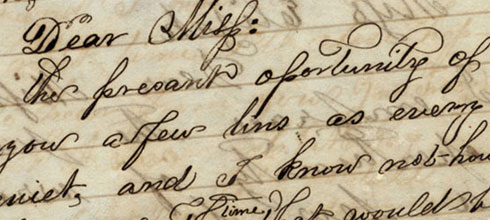 Dear Miss:
The presant oportunity of
you a few lins as every
quiet, and I know not how
Time, that would b